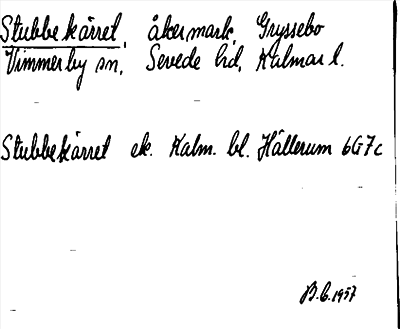 Stubbekärret, åkermark, Gryssebo
Vimmerby sn, Sevede hd, Kalmar l.
Stubbekärret ek. Kalm. bl. Hällerum 6G7c
B.C. 1957